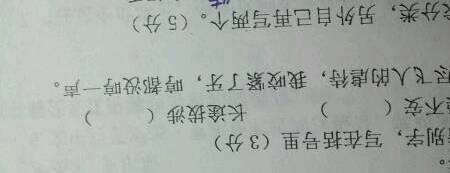 别字，写在括号里（3分）
不安（ ） 长途拔涉（ ）
飞人的虐待，我咬紧了牙，哼都没哼一声。
分类，另外自己再写两个。（5分）